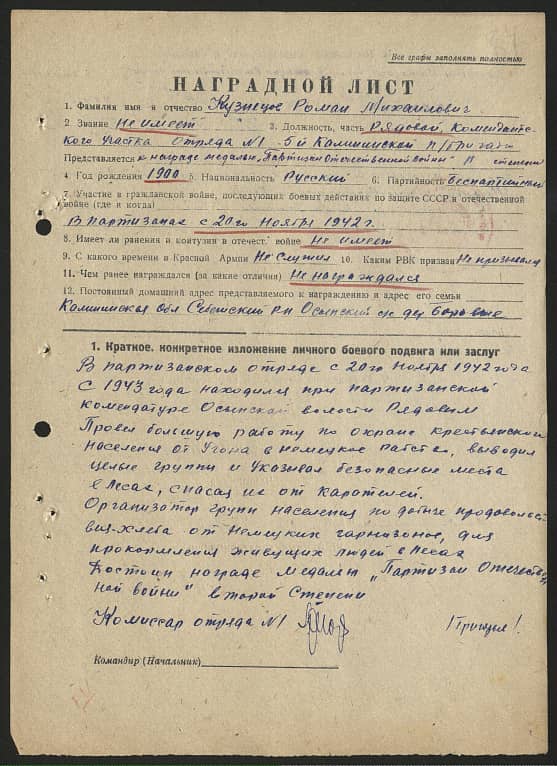 Все графы заполнять полностью
НАГРАДНОЙ ЛИСТ
1. Фамилия имя и отчество Кузнецов Роман Михайлович
2. Звание Не имеет 3. Должность, часть Рядовой, Комендатс-
кого участка Отряда №1 5й Калининской п/бригады
Представляется к награде медалью „Партизан Отечественной войны" II степени
4. Год рождения 1900 5. Национальность Русский 6. Партийность беспартийный
7. Участие в гражданской войне, последующих боевых действиях по защите СССР и отечественной
войне (где и когда)
В партизанах с 20го Ноября 1942 г.
8. Имеет ли ранения и контузии в отечест. войне Не имеет
9. С какого времени в Красной Армии Не служил 10. Каким РВК призван Не призывался
11. Чем ранее награждался (за какие отличия) Не награждался
12. Постоянный домашний адрес представляемого к награждению и адрес его семьи
Калининская обл Себежский рн Осынский с/с дер
1. Краткое, конкретное изложение личного боевого подвига или заслуг
В партизанском отряде с 20го Ноября 1942 года
С 1943 года находился при партизанской
комендатуре Осынской волости Рядовым
Провел большую работу по охране крестьянского
населения от Угона в немецкое рабство, выводил
целые группы и Указывал безопасные места
в лесах, спасая их от карателей.
Организатор групп населения по добыче продовольст
вия-хлеба от Немецких гарнизонов, для
прокормления живущих людей в лесах
Достоин награде медалью „Партизан Отечествен
ной войны" второй Степени
Комиссар отряда №1
Командир (Начальник)